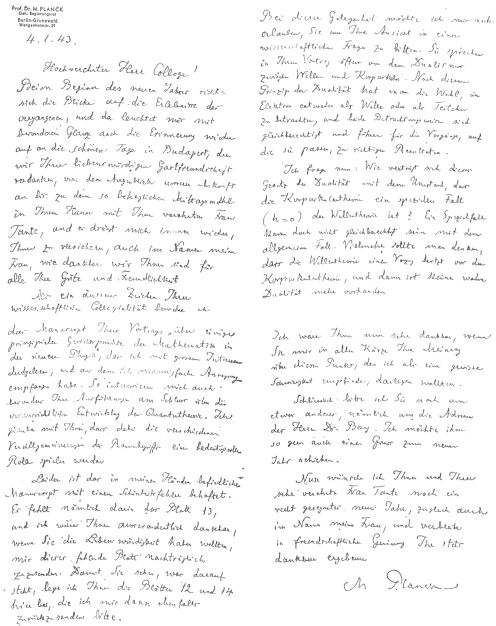 Prof. Dr. M. PLANCK
Geh. Regierungsrat
Berlin-Grunewald
Wangenheimstr. 21
4. 1. 43.
Hochverehrter Herr College!
Beim Beginn des neuen Jahres richten
sich die Blicke auf die Erlebnisse der
vergangenen, und da leuchtet mir mit
besonderem Glanz auch die Erinnerung wieder
auf an die schönen Tage in Budapest, die
wir Ihrer liebenswürdigen Gastfreundschaft
verdanken, von dem Augenblick unserer Ankunft
an bis zu dem so behaglichen Mittagsmahl
in Ihrem Hause mit Ihrer verehrten Frau
Tante, und es drängt mich immer wieder,
Ihnen zu versichern, auch im Namen meiner
Frau, wie dankbar wir Ihnen sind für
alle Ihre Güte und Freundlichkeit
Als ein äusseres Zeichen Ihrer
wissenschaftlichen Collegialität bewahre ich
das Manuscript Ihres Vortrags über einige
prinzipielle Gesichtspunkte der Mathematik in
der neueren Physik, das ich mit grossem Interesse
durchgelesen, und aus dem ich mannigfache Anregung
empfangen habe. So interessieren mich auch
besonders Ihre Ausführungen am Schluss über die
voraussichtliche Entwicklung der Quantentheorie. Ich
glaube mit Ihnen, dass dabei die verschiedenen
Verallgemeinerungen des Raumbegriffs eine bedeutungsvolle
Rolle spielen werden
Leider ist das in meinen Händen befindliche
Manuscript mit einem Schönheitsfehler behaftet.
Es fehlt nämlich darin das Blatt 13,
und ich wäre Ihnen ausserordentlich dankbar,
wenn Sie die Liebenswürdigkeit haben wollten,
mir dieses fehlende Blatt nachträglich
zuzusenden. Damit Sie sehen, was darauf
steht, lege ich Ihnen die Blätter 12 und 14
hier bei, die ich mir dann ebenfalls
zurückzusenden bitte.
Bei dieser Gelegenheit möchte ich mir noch
erlauben, Sie um Ihre Ansicht in einer
wissenschaftlichen Frage zu bitten. Sie sprechen
in Ihrem Vortrag öfters von dem Dualismus
zwischen Wellen und Korpuskeln. Nach diesem
Prinzip der Dualität hat man die Wahl, ein
Elektron entweder als Welle oder als Teilchen
zu betrachten, und beide Betrachtungsweisen sind
gleichberechtigt und führen für die Vorgänge, auf
die sie passen, zu richtigen Resultaten.
Ich frage nun: Wie verträgt sich dieses
Gesetz der Dualität mit dem Umstand, dass
die Korpuskulartheorie ein spezieller Fall
(h=0) der Wellentheorie ist? Ein Spezialfall
kann doch nicht gleichberechtigt sein mit dem
allgemeinen Fall. Vielmehr sollte man denken,
dass die Wellentheorie einen Vorzug besitzt vor der
Korpuskulartheorie, und dann ist keine wahre
Dualität mehr vorhanden
Ich wäre Ihnen nun sehr dankbar, wenn
Sie mir in aller Kürze Ihre Meinung
über diesen Punkt, den ich als eine gewisse
Schwierigkeit empfinde, darlegen wollten.
Schliesslich bitte ich Sie noch um
etwas anderes, nämlich um die Adresse
des Herrn Dr. Bay. Ich möchte ihm
so gern auch einen Gruss zum neuen
Jahr schicken.
Nun wünsche ich Ihnen und Ihrer
sehr verehrten Frau Tante noch ein
recht gesegnetes neues Jahr, zugleich auch
im Namen meiner Frau, und verbleibe
in freundschaftlicher Gesinnung Ihr stets
dankbar ergebener
M Planck